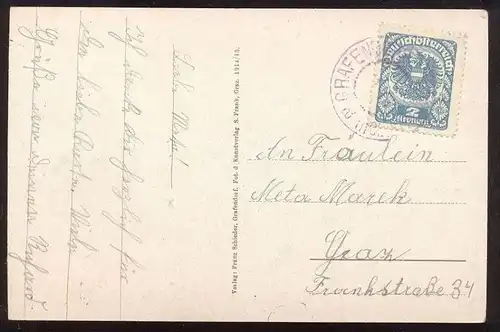 Liebe Meta!
Ich danke dir herzlich für
die lieben
Grüße von deiner
Verlag: Franz Schieder, Grafendorf, Fot. d. Kunstverlag S. Frank, Graz. 1914/15.
GRAFEN
Deutschösterreich
2
Kronen
An Fräulein
Meta Marek
Graz
Frankstraße 34